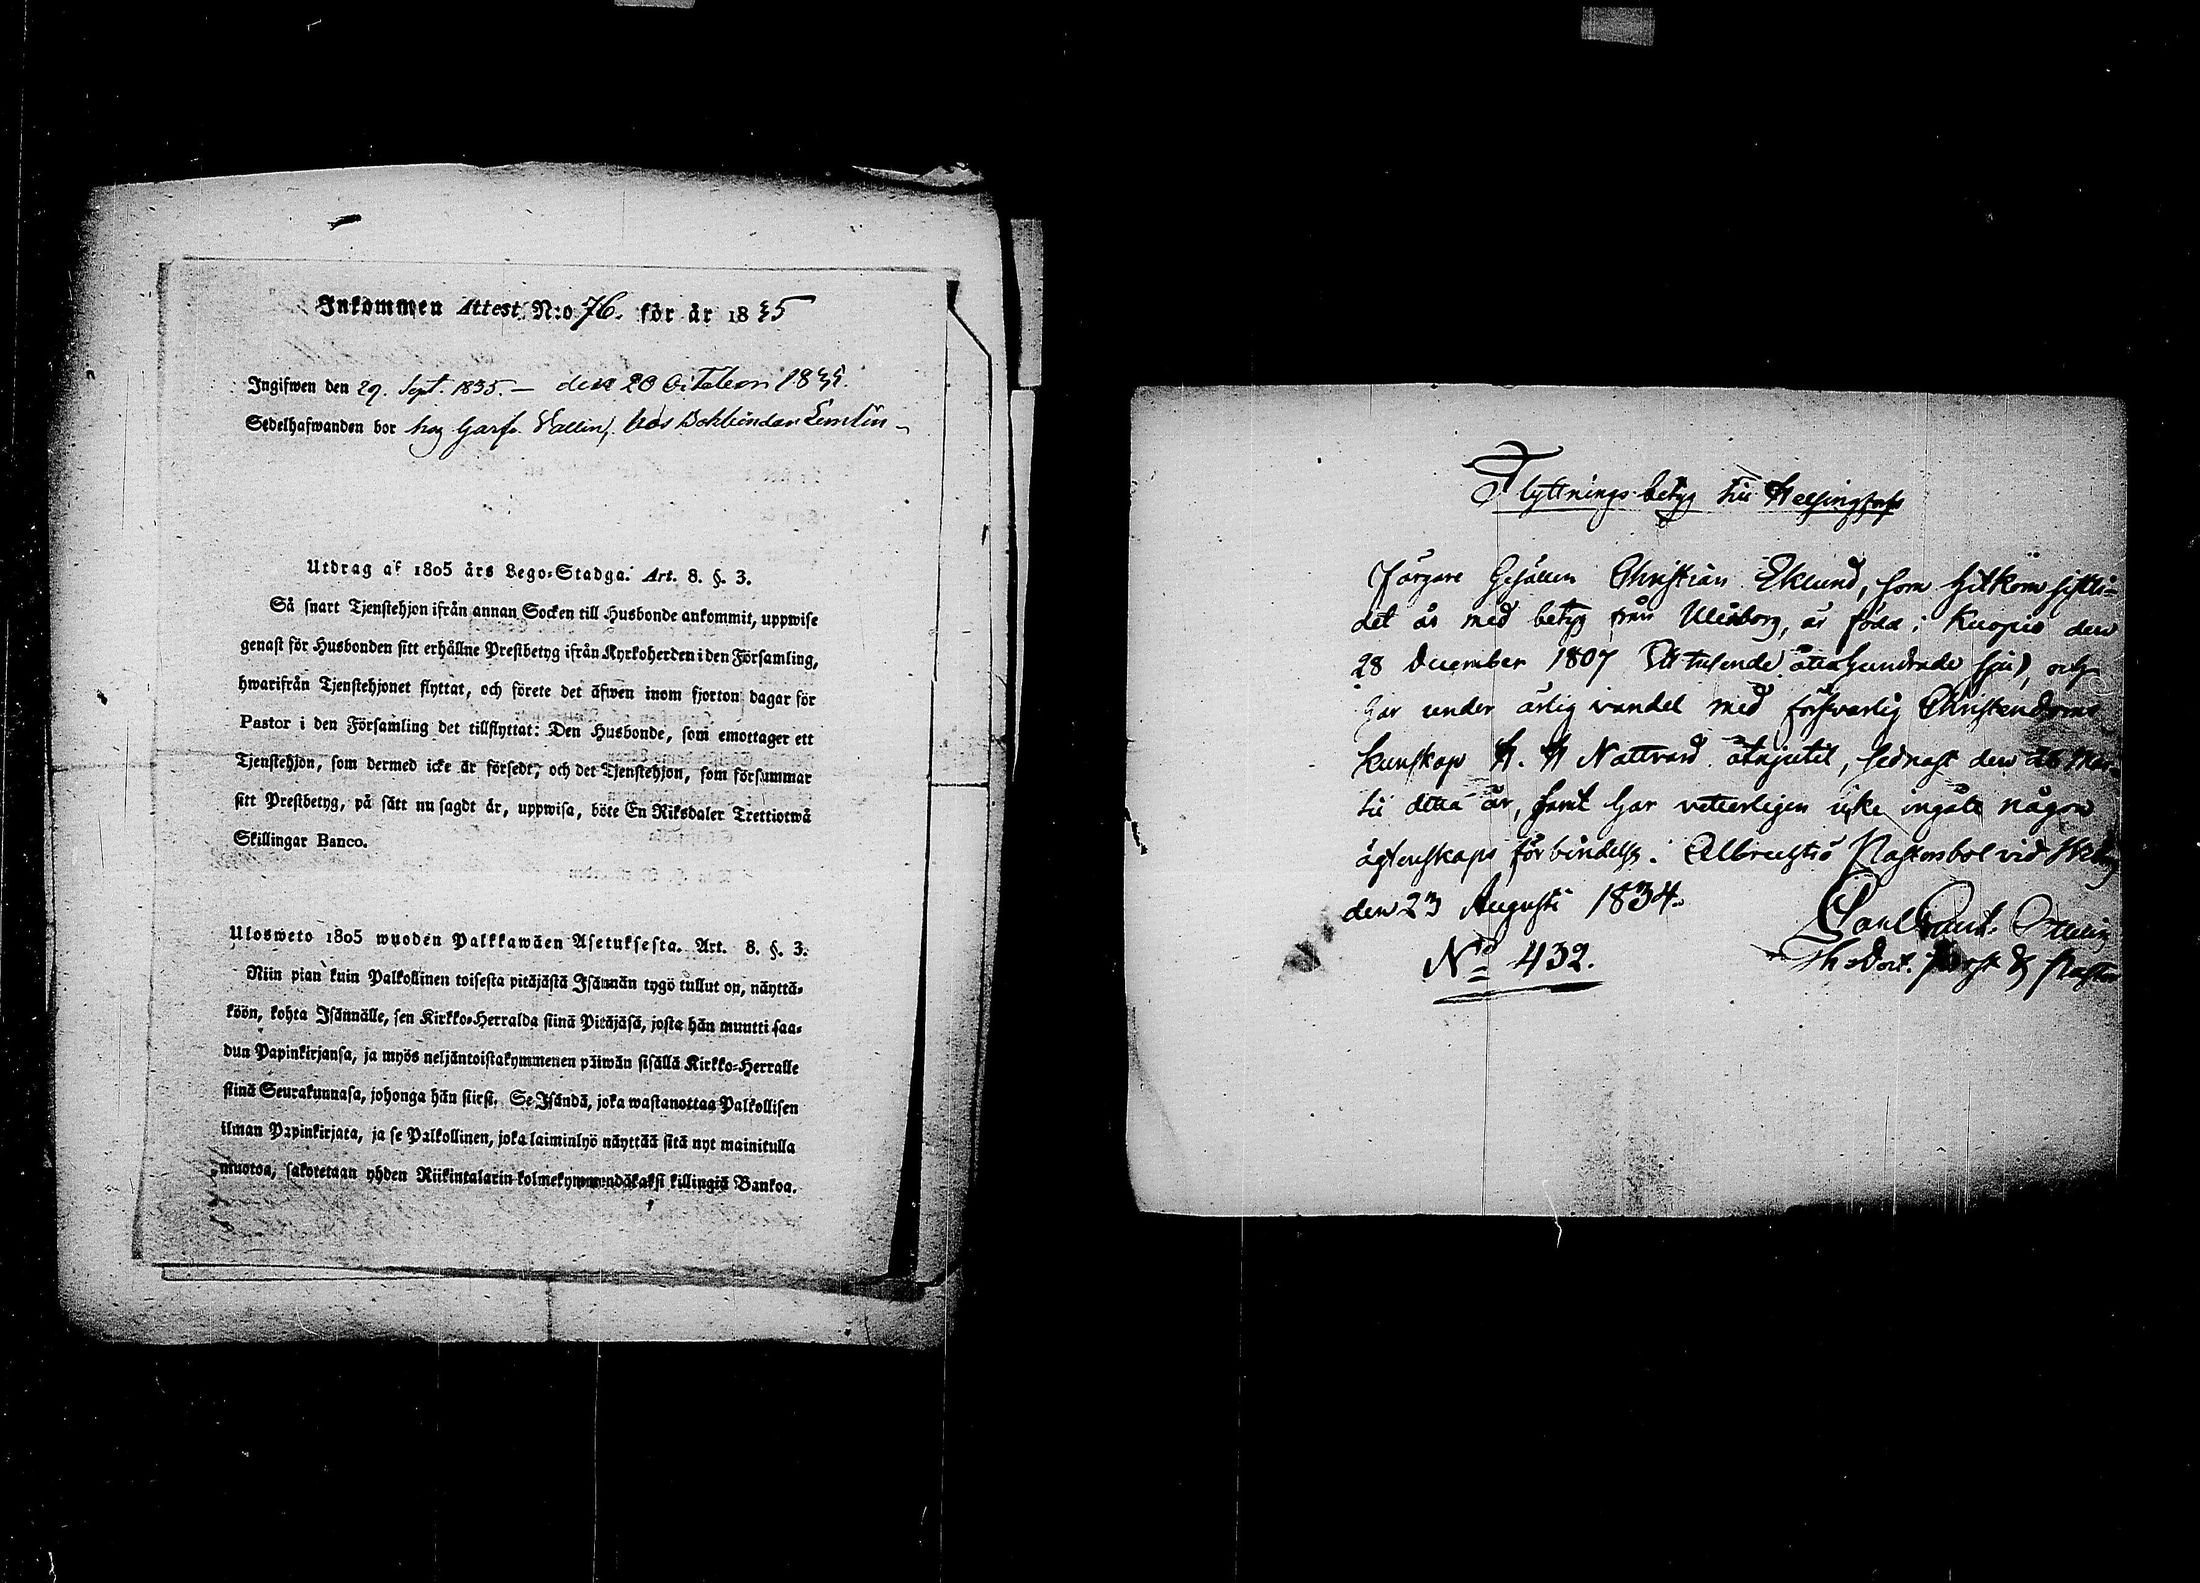 Inkommen Attest N:o 76. för år 1835
Ingifwen den 29. Sept. 1835. — den 20 October 1835.
Sedelhafwanden bor hos Garfv. Vallin, hos Bokbindar
Utdrag af 1805 års Lego-Stadga. Art. 8. §. 3.
Så snart Tjenstehjon ifrån annan Socken till Husbonde ankommit, uppwise
genast för Husbonden sitt erhållne Prestbetyg ifrån Kyrkoherden i den Församling,
hwarifrån Tjenstehjonet flyttat, och förete det äfwen inom fjorton dagar för
Pastor i den Församling det tillflyttat: Den Husbonde, som emottager ett
Tjenstehjon, som dermed icke är försedt, och det Tjenstehjon, som försummar
sitt Prestbetyg, på sätt nu sagdt är, uppwisa, böte En Riksdaler Trettiotwå
Skillingar Banco.
Ulosweto 1805 wuoden Palkkawäen Asetuksesta. Art. 8. §. 3.
Niin pian kuin Palkollinen toisesta pitäjästä Isännän tygö tullut on, näyttä-
köön, kohta Isännälle, sen Kirkko-Herralda siinä Pitäjäsä, josta hän muutti saa-
dun Papinkirjansa, ja myös neljäntoistakymmenen päiwän sisällä Kirkko-Herralle
siinä Seurakunnasa, johonga hän siirsi. Se Isändä, joka wastanottaa Palkollisen
ilman Papinkirjata, ja se Palkollinen, joka laiminlyö näyttää sitä nyt mainitulla
muotoa, sakotetaan yhden Riikintalarin kolmekymmendäkaksi killingiä Bankoa.
Flyttnings betyg till Helsingfors
Färgare Gesällen Christian Eklund, som hitkom sistli-
det år med betyg från Uleåborg, är född i Kuopio den
28 December 1807 Ett tusende åttahundrade sju), och
har under ärlig vandel med försvarlig Christendoms
kunskap H. H Nattvard åtnjutit, sednast den Mar-
tii detta år, samt har vetterligen icke ingått någon
ägtenskaps förbindelse. Pastorsbol vid
den 23 Augusti 1834.
Carl
N:o 432.